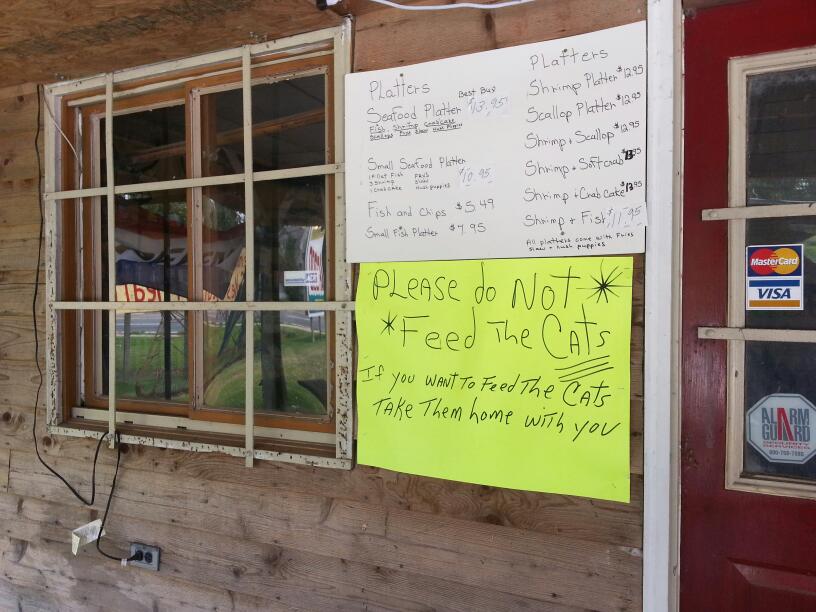 Platters
Best Buy
Seafood Platter $13.95
Fish, Shrimp, Crabcake
Scallops Fries Slaw Hush Puppies
Small Seafood Platter
$10.95
1 Filet Fish Frys
3 Shrimp Slaw
1 Crabcake Hush puppies
Fish and Chips $5.49
Small Fish Platter $7.95
Platters
Shrimp Platter $12.95
Scallop Platter $12.95
Shrimp + Scallop $12.95
Shrimp + Softcrab
Shrimp + Crab Cake
Shrimp + Fish $11.95
All platters come with Fries
slaw + hush puppies
PLEASE do NOT
*Feed The CATS
If you WANT To Feed The CATS
TAKE Them home with you
MasterCard
VISA
ALARM
GUARD
SECURITY
SERVICES